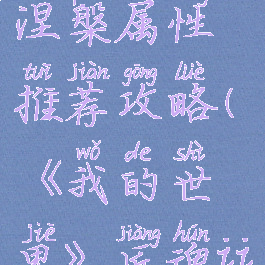 涅槃属性
tuī jiàn gōng lüè
推荐攻略(
wǒ de shì
《我的世
jiè jiàng hún
界》匠魂